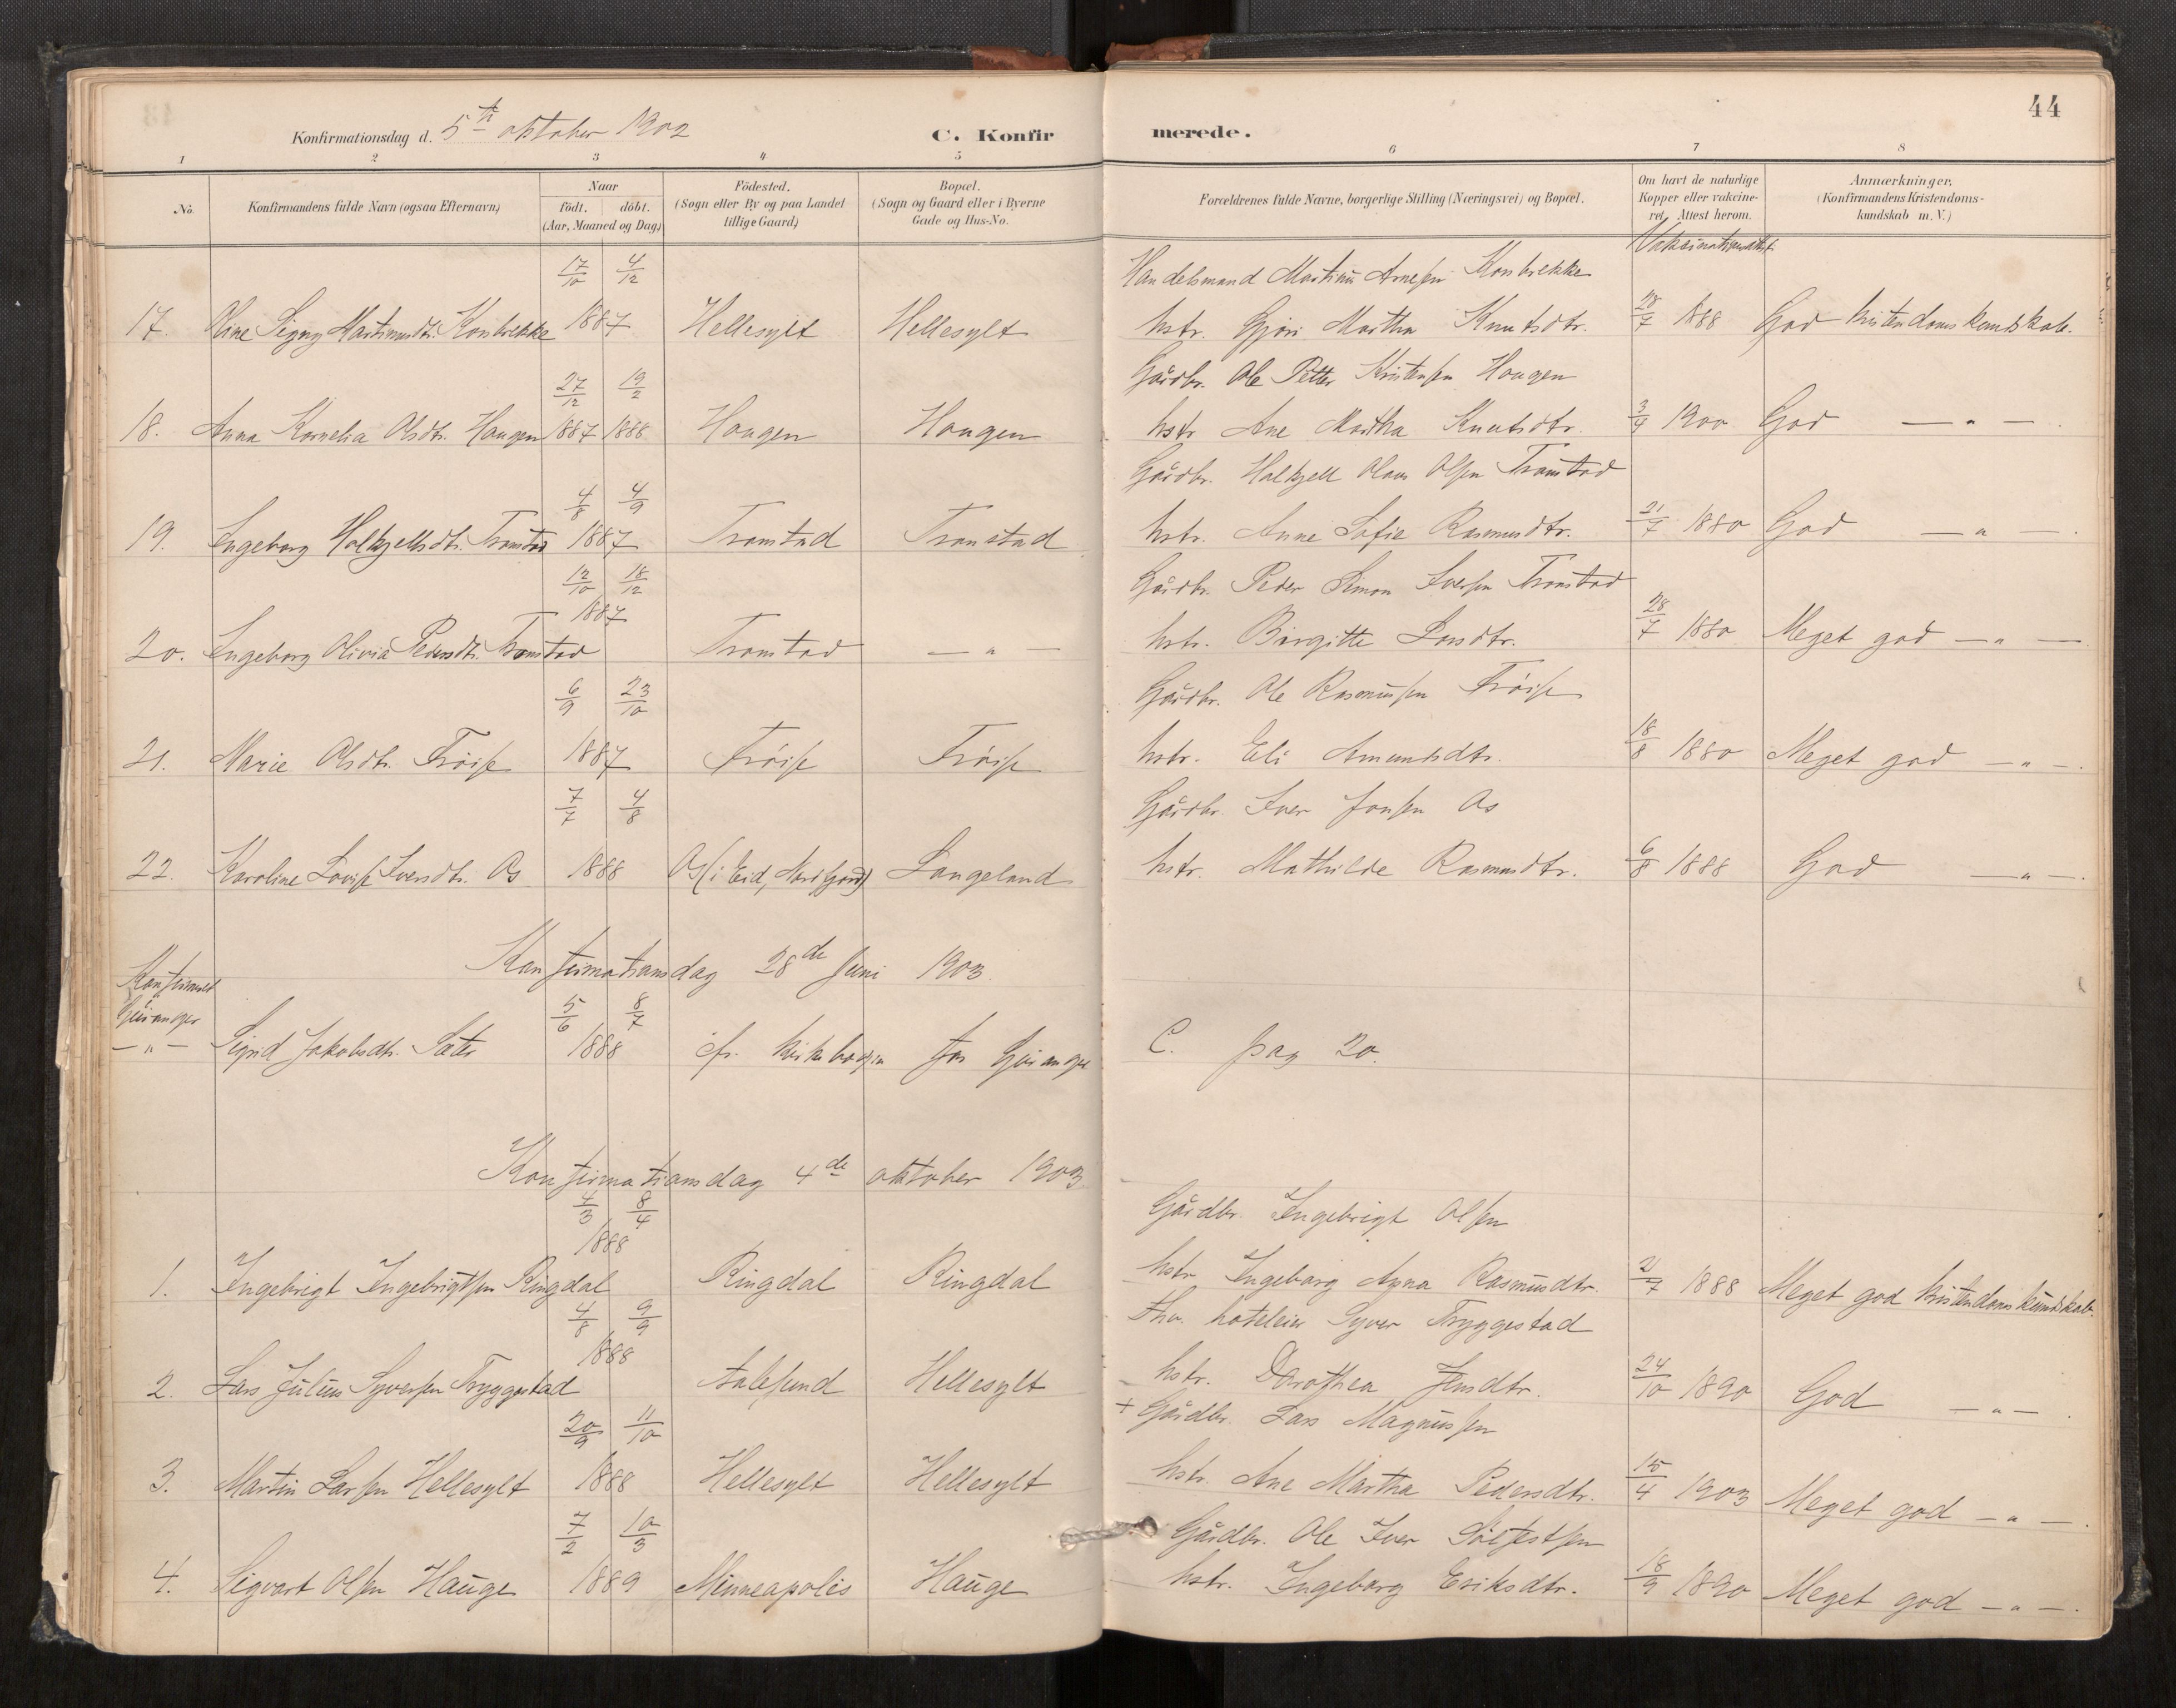 44
Konfirmationsdag d. 5te oktober 1902
C. Konfirmerede.
1 2 3 4 5 6 7 8
No.
Konfirmandens fulde Navn (ogsaa Efternavn)
Naar
födt. döbt.
(Aar, Maaned og Dag)
Födested.
(Sogn eller By og paa Landet
tillige Gaard)
Bopæl.
(Sogn og Gaard eller i Byerne
Gade og Hus-No.
Forældrenes fulde Navne, borgerlige Stilling (Næringsvei) og Bopæl.
Om havt de naturlige
Kopper eller vakcine-
ret. Attest herom.
Anmærkninger.
(Konfirmandens Kristendoms-
kundskab m. V.)
17/10 4/12 Handelsmand Martinus Arnesen Konbrekke
17. Oline Signy Martinusdtr. Konbrekke 1887 Hellesylt Hellesylt hstr. Gjøri Martha Knutsdtr. 28/7 1888 God kristendomskundskab.
27/12 19/2 Gårdbr. Ole Petter Kristensen Haugen
18. Anna Kornelia Olsdtr. Haugen 1887 1888 Haugen Haugen hstr. Ane Martha Knutsdtr. 3/4 1900 God — " —.
4/8 4/9 Gårdbr. Halkjell Olaus Olsen Tronstad
19. Ingeborg Halkjellsdtr. Tronstad 1887 Tronstad Tronstad hstr. Anne Sofie Rasmusdtr. 21/7 1880 God — " —.
12/10 18/12 Gårdbr. Peder Simon Iversen Tronstad
1887
20. Ingeborg Olivia Pedersdtr. Tronstad Tronstad — " — hstr. Birgitte Larsdtr. 28/7 1880 Meget god — " —.
6/9 23/10 Gårdbr. Ole Rasmussen Frøise
21. Marie Olsdtr. Frøise 1887 Frøise Frøise hstr. Eli Amundsdtr. 18/8 1880 Meget god — " —.
7/7 4/8 Gårdbr. Iver Jonsen Os
22. Karoline Lovise Iversdtr. Os 1888 Os (i Eid, Nordfjord) Langeland hstr. Mathilde Rasmusdtr. 6/8 1888 God — " —.
Konfirmationsdag 28de Juni 1903.
Konfirmeret
Geiranger 5/6 8/7
— " — Sigrid Jakobsdtr. Sæter 1888 cfr. kirkebogen for Geiranger C. pag 20.
Konfirmationsdag 4de oktober 1903
4/3 8/4 Gårdbr. Ingebrigt Olsen
1888
1. Ingebrigt Ingebrigtsen Ringdal Ringdal Ringdal hstr. Ingeborg Anna Rasmusdtr. 2/7 1888 Meget god kristendomskundskab.
4/8 9/9 Fhv. hoteleier Syver Tryggestad
1888
2. Lars Julius Syversen Tryggestad Aalesund Hellesylt hstr. Dorothea Jensdtr. 24/10 1890 God — " —.
20/9 11/10 + Gårdbr. Lars Magnussen
3. Martin Larsen Hellesylt 1888 Hellesylt Hellesylt hstr. Ane Martha Pedersdtr. 15/4 1903 Meget god — " —.
7/2 10/3 Gårdbr. Ole Iver Sølfestsen
4. Sigvart Olsen Hauge 1889 Minneapolis Hauge hstr. Ingeborg Eriksdtr. 18/9 1890 Meget god — " —.